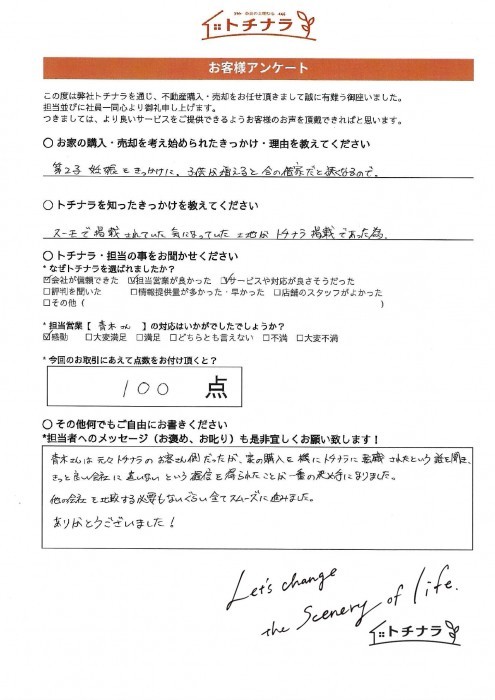 トチナラ
お客様アンケート
この度は弊社トチナラを通じ、不動産購入・売却をお任せ頂きまして誠に有難う御座いました。
担当並びに社員一同心より御礼申し上げます。
つきましては、より良いサービスをご提供できるようお客様のお声を頂戴できればと思います。
〇 お家の購入・売却を考え始められたきっかけ・理由を教えてください
第2子妊娠をきっかけに、子供が増えると今の借家だと狭くなるので。
〇 トチナラを知ったきっかけを教えてください
スーモで掲載されていた気になっていた土地がトチナラ掲載であった為。
〇 トチナラ・担当の事をお聞かせください
* なぜトチナラを選ばれましたか？
☑会社が信頼できた ☑担当営業が良かった ☑サービスや対応が良さそうだった
□評判を聞いた □情報提供量が多かった・早かった □店舗のスタッフがよかった
□その他（ ）
* 担当営業【 青木さん 】の対応はいかがでしたでしょうか？
☑感動 □大変満足 □満足 □どちらとも言えない □不満 □大変不満
* 今回のお取引にあえて点数をお付け頂くと？
100 点
〇 その他何でもご自由にお書きください
*担当者へのメッセージ（お褒め、お叱り）も是非宜しくお願い致します！
青木さんは元々トチナラのお客さん側だったが、家の購入を機にトチナラに転職されたという話を聞き、
きっと良い会社に違いないという確信を得られたことが一番の決め手になりました。
他の会社を比較する必要もないくらい全てスムーズに進みました。
ありがとうございました！
Let's change
the Scenery of life.
トチナラ